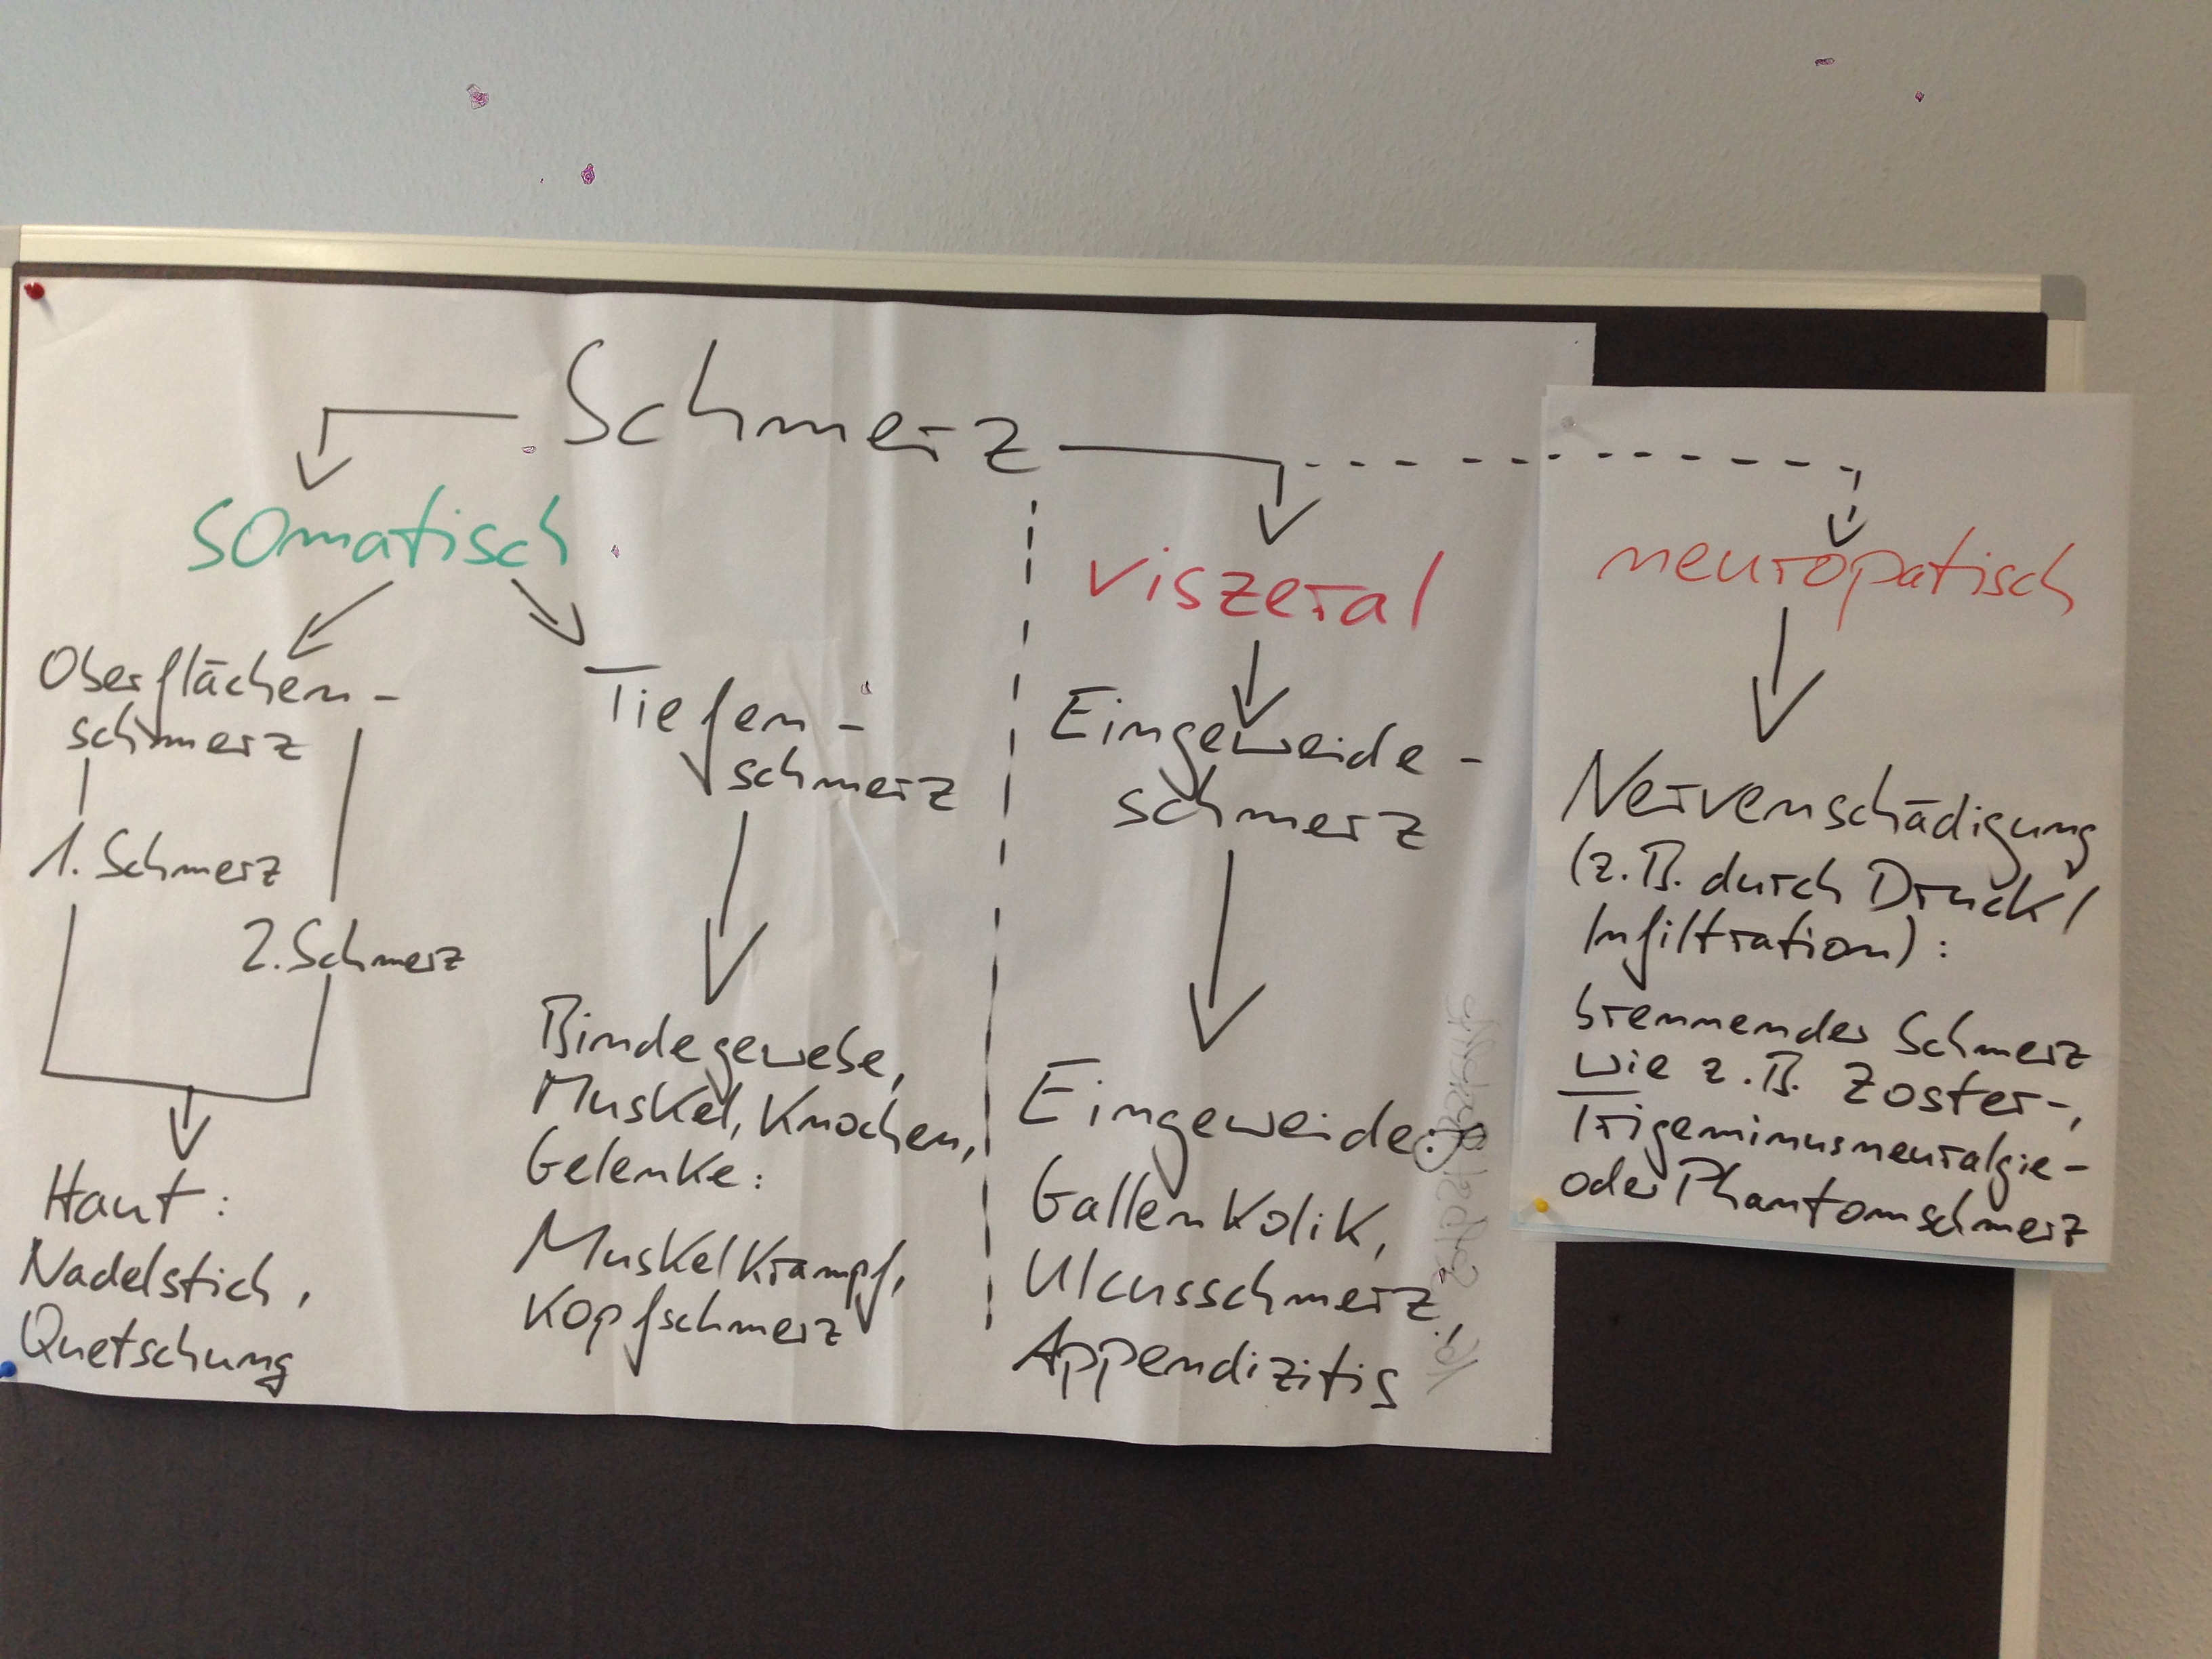 Schmerz
somatisch
Oberflächen-
schmerz
1. Schmerz
2. Schmerz
Haut:
Nadelstich,
Quetschung
Tiefen-
schmerz
Bindegewebe,
Muskel, Knochen,
Gelenke:
Muskelkrampf,
Kopfschmerz
viszeral
Eingeweide-
schmerz
Eingeweide:
Gallenkolik,
Ulcusschmerz,
Appendizitis
neuropatisch
Nervenschädigung
(z.B. durch Druck/
Infiltration):
brennender Schmerz
wie z.B. Zoster-,
Trigeminusneuralgie-
oder Phantomschmerz